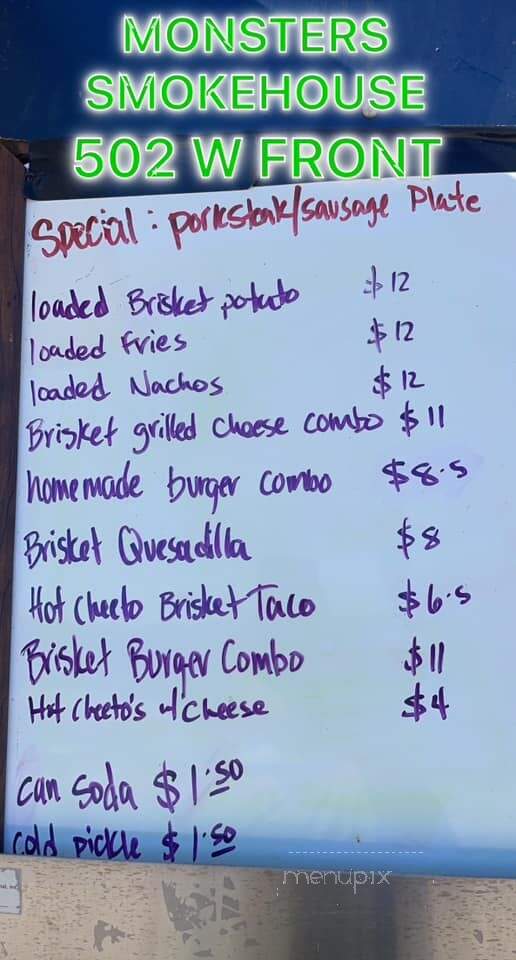 MONSTERS
SMOKEHOUSE
502 W FRONT
Special: porksteak/sausage Plate
loaded Brisket potato $12
loaded fries $12
loaded Nachos $12
Brisket grilled cheese combo $11
homemade burger combo $8.5
Brisket Quesadilla $8
Hot Cheeto Brisket Taco $6.5
Brisket Burger Combo $11
Hot Cheeto's w/ Cheese $4
can soda $1.50
cold pickle $1.50
menupix